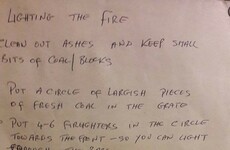 LIGHTING THE FIRE
CLEAN OUT ASHES AND KEEP SMALL
BITS OF COAL/BLOCKS
PUT A CIRCLE OF LARGISH PIECES
OF FRESH COAL IN THE GRATE
PUT 4-6 FIRELIGHTERS IN THE CIRCLE
TOWARDS THE FRONT - SO YOU CAN LIGHT